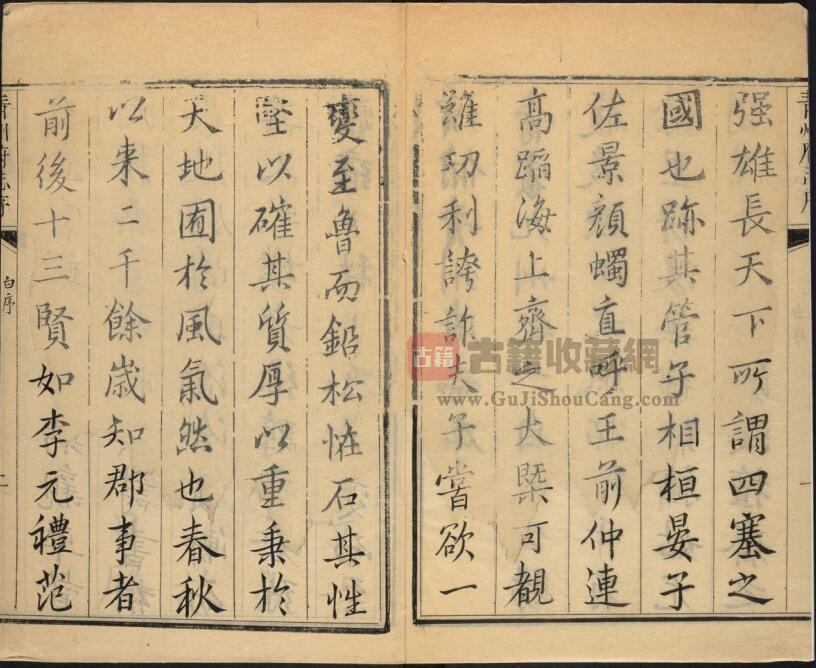 强雄長天下所謂四塞之
國也跡其管子相桓晏子
佐景顔蠋直呼王前仲連
高蹈海上齊之大槩可覩
雖功利誇詐夫子嘗欲一
變至魯而鉛松恠石其性
堅以確其質厚以重秉於
天地囿於風氣然也春秋
以来二千餘歲知郡事者
前後十三賢如李元禮范
青州府志序
自序
古籍
古籍收藏網
www.GuJiShouCang.com